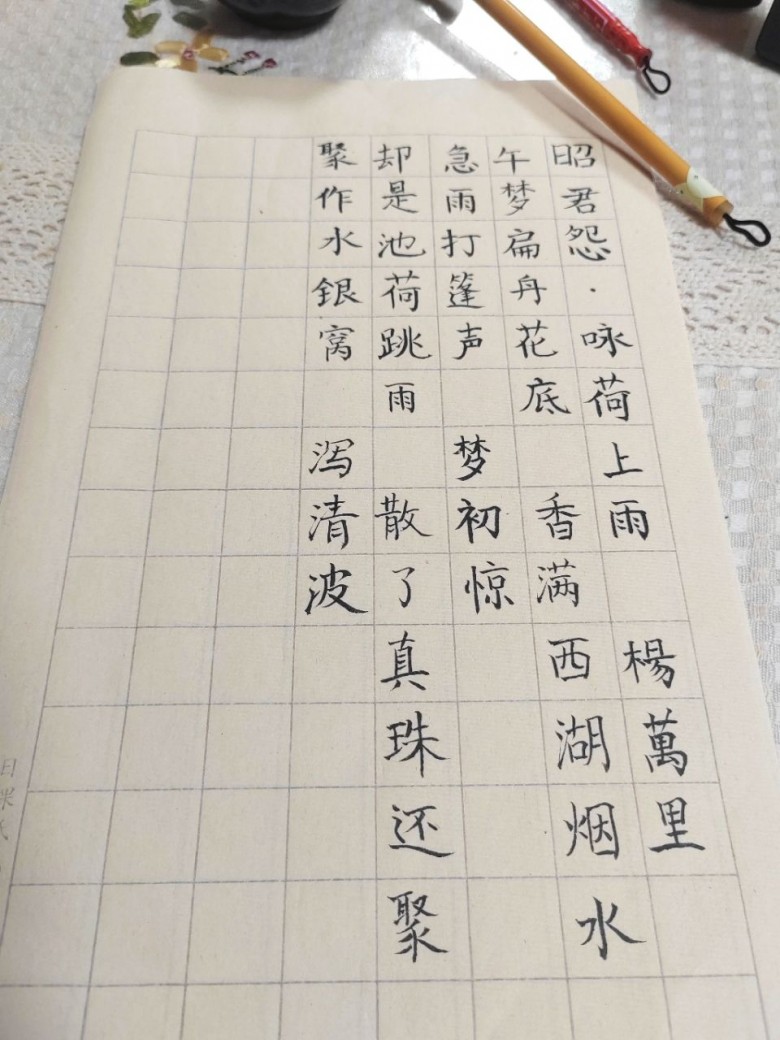 昭君怨·咏荷上雨 楊萬里
午梦扁舟花底 香满西湖烟水
急雨打篷声 梦初惊
却是池荷跳雨 散了真珠还聚
聚作水銀窝 泻清波